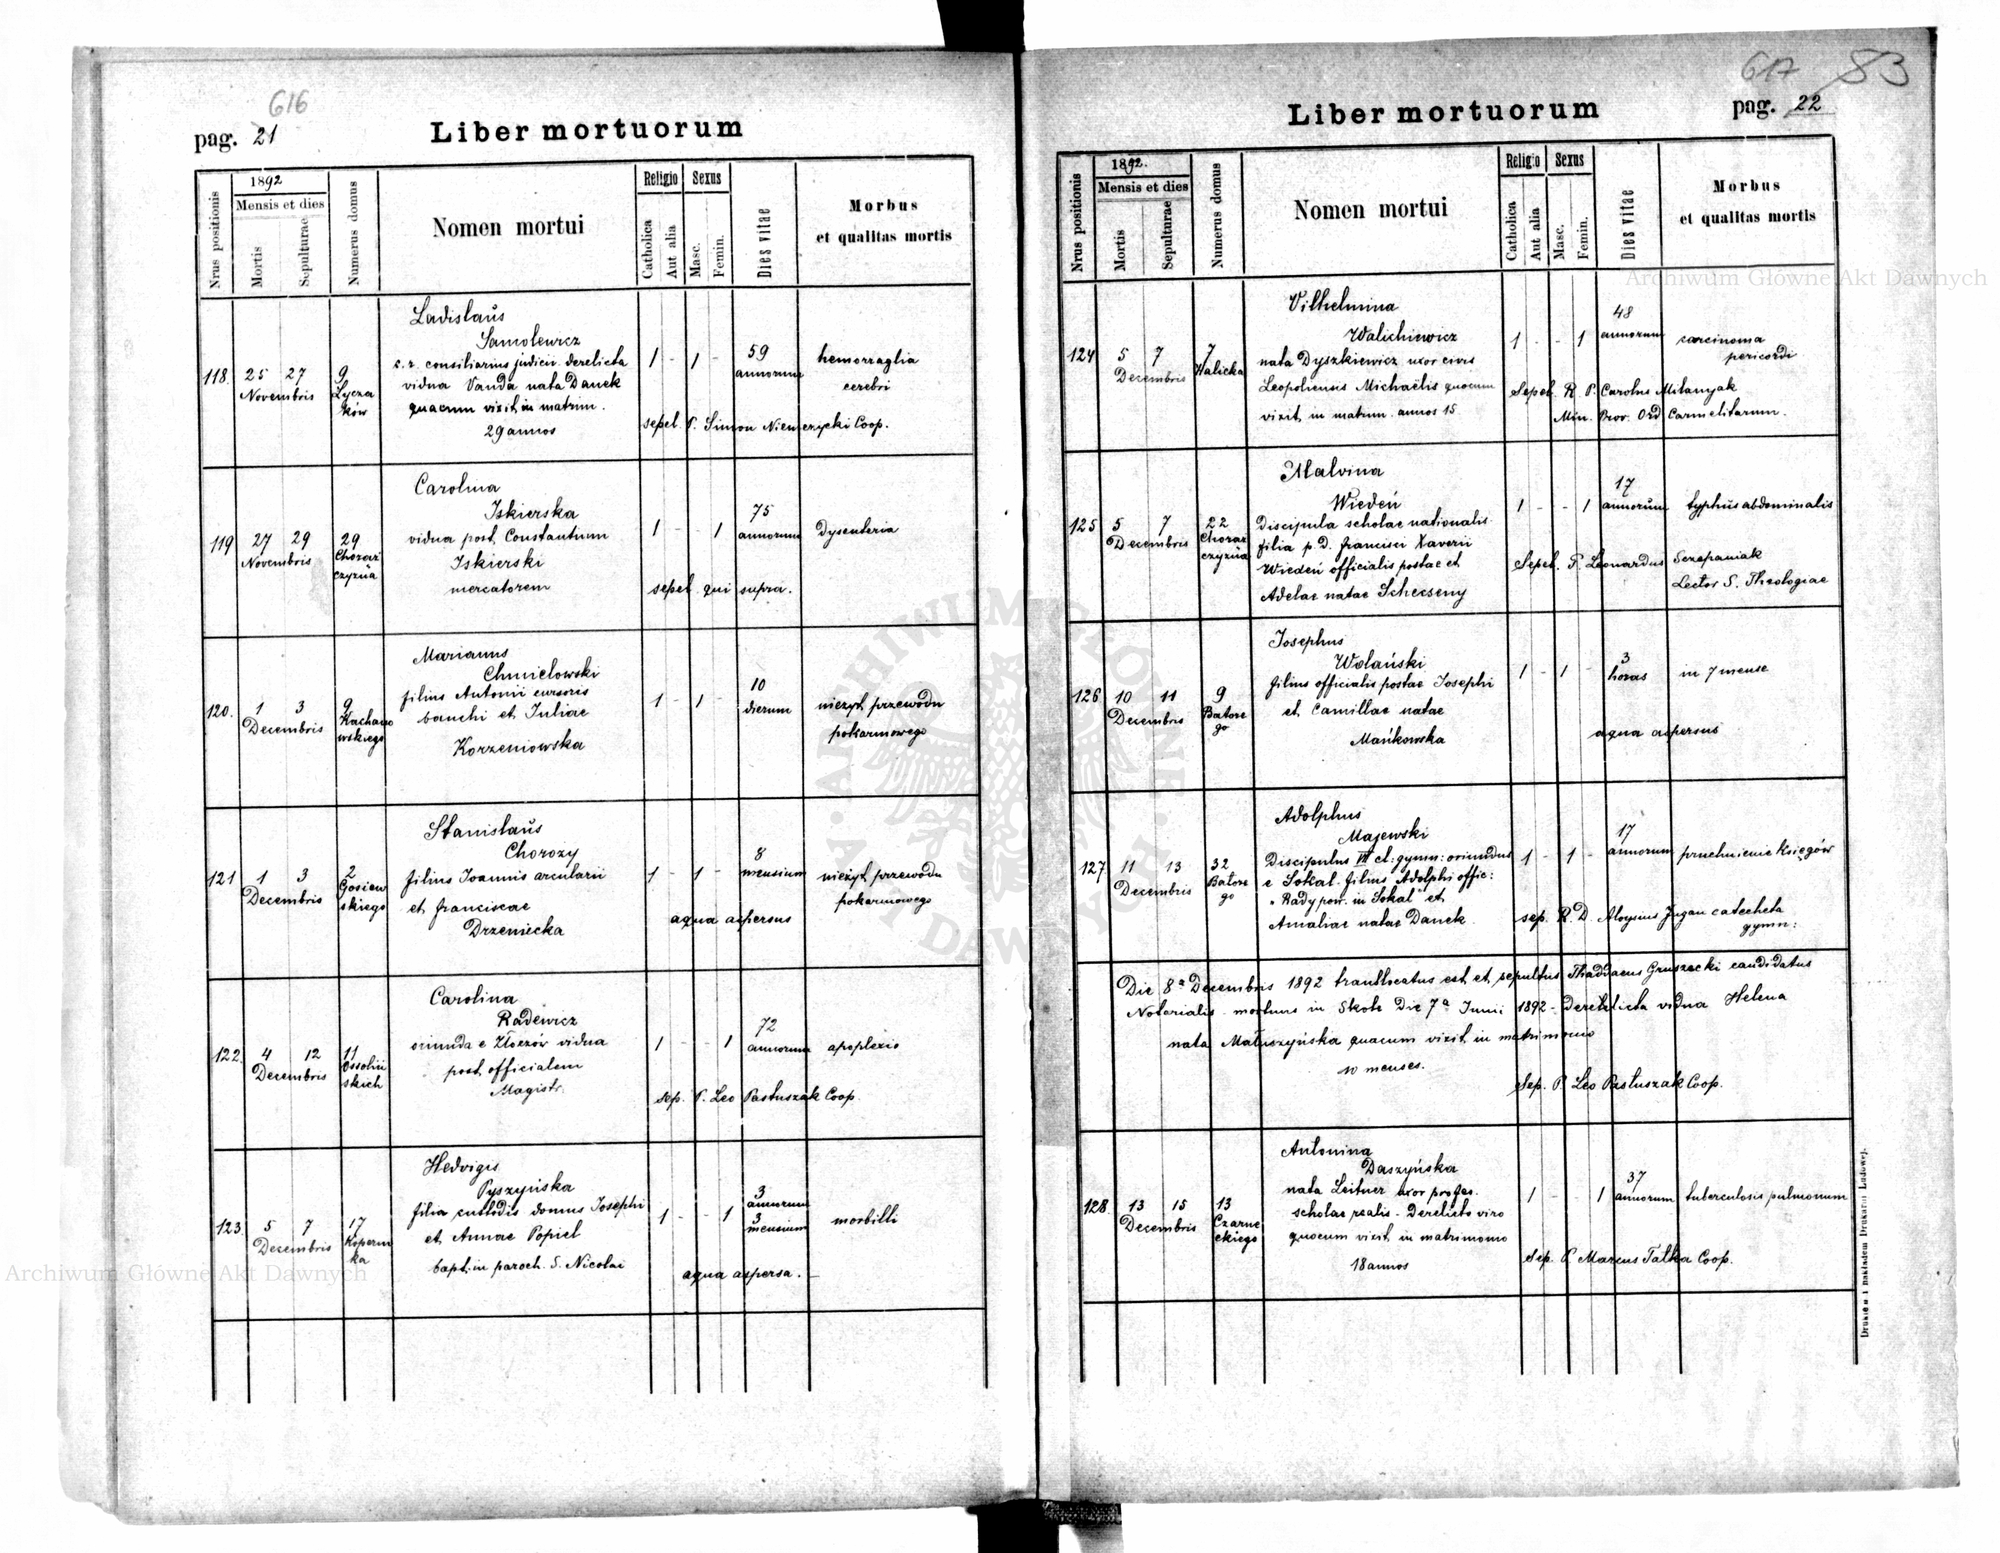 616
pag. 21
Liber mortuorum
Nrus positionis
1892
Mensis et dies
Mortis
Sepulturae
Numerus domus
Nomen mortui
Religio
Catholica
Aut alia
Sexus
Masc.
Femin.
Dies vitae
Morbus
et qualitas mortis
118.
25 27
Novembris
9
Łycza
ków
Ladislaŭs
Samolewicz
c. r. consiliarius judicii derelicta
vidua Vanda nata Danek
quacum vixit in matrim.
29 annos
1 - 1 -
59
annorum
hemorraglia
cerebri
sepel. P. Simon Niemczycki Coop.
119
27 29
Novembris
29
Chorąż
czyzna
Carolina
Iskierska
vidua post Constantum
Iskierski
mercatorem
1 - - 1
75
annorum
Dysenteria
sepel. qui supra.
120.
1 3
Decembris
9
Kachano
wskiego
Marianus
Chmielowski
filius Antonii cursoris
banchi et Juliae
Korzeniowska
1 - 1 -
10
dierum
nieżyt przewodu
pokarmowego
121
1 3
Decembris
2
Gosiew
skiego
Stanislaŭs
Chorozy
filius Joannis arcularii
et franciscae
Drzeniecka
1 - 1 -
8
mensium
nieżyt przewodu
pokarmowego
aqua aspersus
122.
4 12
Decembris
11
Ossoliń
skich
Carolina
Radewicz
oriunda e Złoczów vidua
post officialem
Magistr.
1 - - 1
72
annorum
apoplexio
sep. P. Leo Pastuszak Coop.
123.
5 7
Decembris
17
Koperni
ka
Hedvigis
Pyszyńska
filia custodis domus Josephi
et Annae Popiel
bapt. in paroch. S. Nicolai
1 - - 1
3
annorum
3
mensium
morbilli
aqua aspersa. -
617 83
Liber mortuorum
pag. 22
Nrus positionis
1892.
Mensis et dies
Mortis
Sepulturae
Numerus domus
Nomen mortui
Religio
Catholica
Aut alia
Sexus
Masc.
Femin.
Dies vitae
Morbus
et qualitas mortis
124
5 7
Decembris
7
Halicka
Vilhelmina
Walichiewicz
nata Dyszkiewicz uxor civis
Leopoliensis Michaëlis quocum
vixit in matrim. annos 15
1 - - 1
48
annorum
carcinoma
pericordi
Sepel. R. P. Carolus Mitanyak
Min. Prov. Ord Carmelitarum.
125
5 7
Decembris
22
Chorąż
czyzna
Malvina
Wiedeń
Discipula scholae nationalis
filia p. D. francisci Xaverii
Wiedeń officialis postae et
Adelae natae Schecseny
1 - - 1
17
annorum
typhus abdominalis
Sepel. P. Leonardus Szczepaniak
Lector S. Theologiae
126
10 11
Decembris
9
Batore
go
Josephus
Wolański
filius officialis postae Josephi
et Camillae natae
Mańkowska
1 - 1 -
3
horas
in 7 mense
aqua aspersus
127
11 13
Decembris
32
Batore
go
Adolphus
Majewski
Discipulus VII cl: gymn: oriundus
e Sokal - filius Adolphi offic:
"Rady pow. in Sokal" et
Amaliae natae Danek
1 - 1 -
17
annorum
pruchnienie księgów
sep. R. D. Aloysius Jugan catecheta
gymn:
Die 8ª Decembris 1892 translocatus est et sepultus Thaddaeus Gruszecki candidatus
Notarialis - mortuus in Skole Die 7ª Junii 1892 - Derelicta vidua Helena
nata Matuszyńska quacum vixit in matrimonio
10 menses.
Sep. P. Leo Pastuszak Coop.
128.
13 15
Decembris
13
Czarne
ckiego
Antonina
Daszyńska
nata Leitner uxor profes.
scholae realis - Derelicto viro
quocum vixit in matrimonio
18 annos
1 - - 1
37
annorum
tuberculosis pulmonum
Sep. P. Marcus Talka Coop.
Drukiem i nakładem Drukarni Ludowej.
Archiwum Główne Akt Dawnych
Archiwum Główne Akt Dawnych
ARCHIWUM GŁÓWNE AKT DAWNYCH